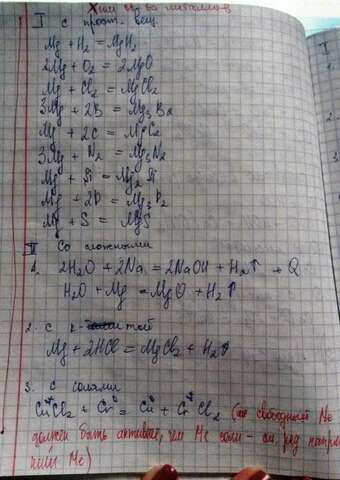 Хим св-ва металлов
I с прост. вещ.
Mg + H2 = MgH2
2Mg + O2 = 2MgO
Mg + Cl2 = MgCl2
3Mg + 2B = Mg3B2
Mg + 2C = MgC2
3Mg + N2 = Mg3N2
Mg + Si = Mg2Si
Mg + 2P = Mg3P2
Mg + S = MgS
II Со сложными
1.
2H2O + 2Na = 2NaOH + H2↑ + Q
H2O + Mg = MgO + H2↑
2. с к-той
Mg + 2HCl = MgCl2 + H2↑
3. с солями
CuCl2 + Cr = Cu + CrCl2 (свободный Me
должен быть активнее, чем Me соли - см. ряд напря
Me)